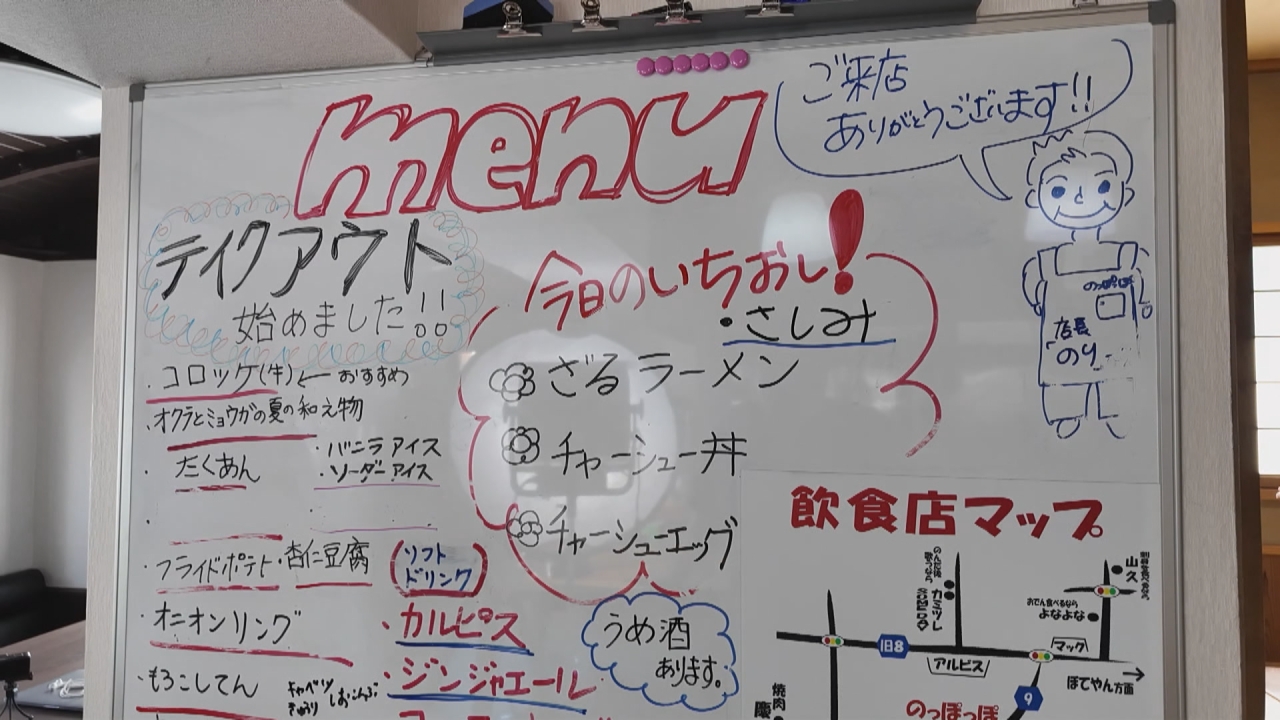 menu
ご来店
ありがとうございます!!
のっぽっぽ
店長
のり
テイクアウト
始めました!!
今日のいちおし!
・さしみ
ざるラーメン
チャーシュー丼
チャーシューエッグ
・コロッケ(牛)← おすすめ
・オクラとミョウガの夏の和え物
・たくあん
・バニラアイス
・ソーダーアイス
・フライドポテト・杏仁豆腐
(ソフト
ドリンク)
・オニオンリング
・カルピス
・もろこしてん
キャベツ
きゅうり
しおこんぶ
・ジンジャエール
うめ酒
あります。
飲食店マップ
カミツレ
山久
おでん食べるなら
よなよな
旧8
アルビス
マック
ぽてやん方面
9
焼肉
慶
のっぽっぽ